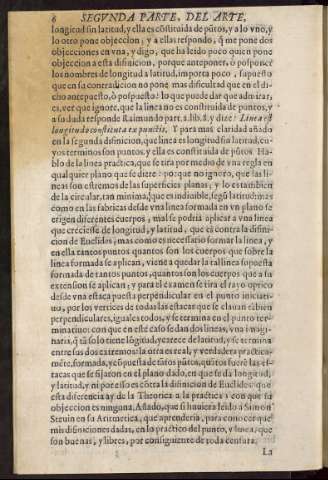 6 SEGVNDA PARTE, DEL ARTE,
longitud sin latitud, y ella es cõstituida de pũtos, y a lo vno, y
lo otro pone objeccion, y a ellas respondo, q̃ me pone dos
objecciones en vna, y digo, que ha leido poco quien pone
objeccion a esta difinicion, porque anteponer, ò posponer
los nombres de longitud a latitud, importa poco, supuesto
que en su contradicion no pone mas dificultad que en el di-
cho antepuesto, ò pospuesto: lo que puede dar que admirar,
es, ver que ignore, que la linea no es constituida de puntos, y
a su duda responde Raimundo part. 2. lib. 8. y dize: Linea est
longitudo constituta ex punctis. Y para mas claridad añado
en la segunda difinicion, que linea es longitud sin latitud, cu-
yos terminos son puntos, y ella es constituida de pũtos. Ha-
blo de la linea practica, que se tira por medio de vna regla en
qualquier plano que se diere: porque no ignoro, que las li-
neas son estremos de las superficies planas; y lo es tambien
de la circular, tan minima, que es indiuisible, segũ latitud: mas
como en las fabricas desde vna linea formada en vn plano se
erigen diferentes cuerpos, mal se podrà aplicar a vna linea
que careciesse de longitud, y latitud, que es contra la difini-
cion de Euclides, mas como es necessario formar la linea, y
en ella tantos puntos quantos son los cuerpos que sobre la
linea formada se aplican, viene a quedar la tal linea supuesta
formada de tantos puntos, quantos son los cuerpos que a su
extension se aplican; y para el examen se tira el rayo optico
desde vna estaca puesta perpendicular en el punto iniciati-
uo, por los vertices de todas las estacas que se clauan tãbien
perpendiculares, iguales todos, y se termina en el punto ter-
minatiuo: con que en este caso se dan dos lineas, vna imagi-
naria, q̃ tã solo tiene lõgitud, y carece de latitud, y se termina
entre sus dos extremos: la otra es real, y verdadera practica-
mẽte, formada, y cõpuesta de tãtos pũtos, quãtos fuerẽ las es-
tacas que se fijaron en el plano dado, en que se da longitud,
y latitud, y ni por esso es cõtra la difinicion de Euclides: que
esta diferencia ay de la Theorica a la practica: con que su
objeccion es ninguna. Añado, que si huuiera leido a Simon
Steuin en su Aritmetica, que aprenderia, para conocer que
mis difiniciones dadas, en lo practico del punto, y linea, que
son buenas, y libres, por consiguiente de toda censura.
La